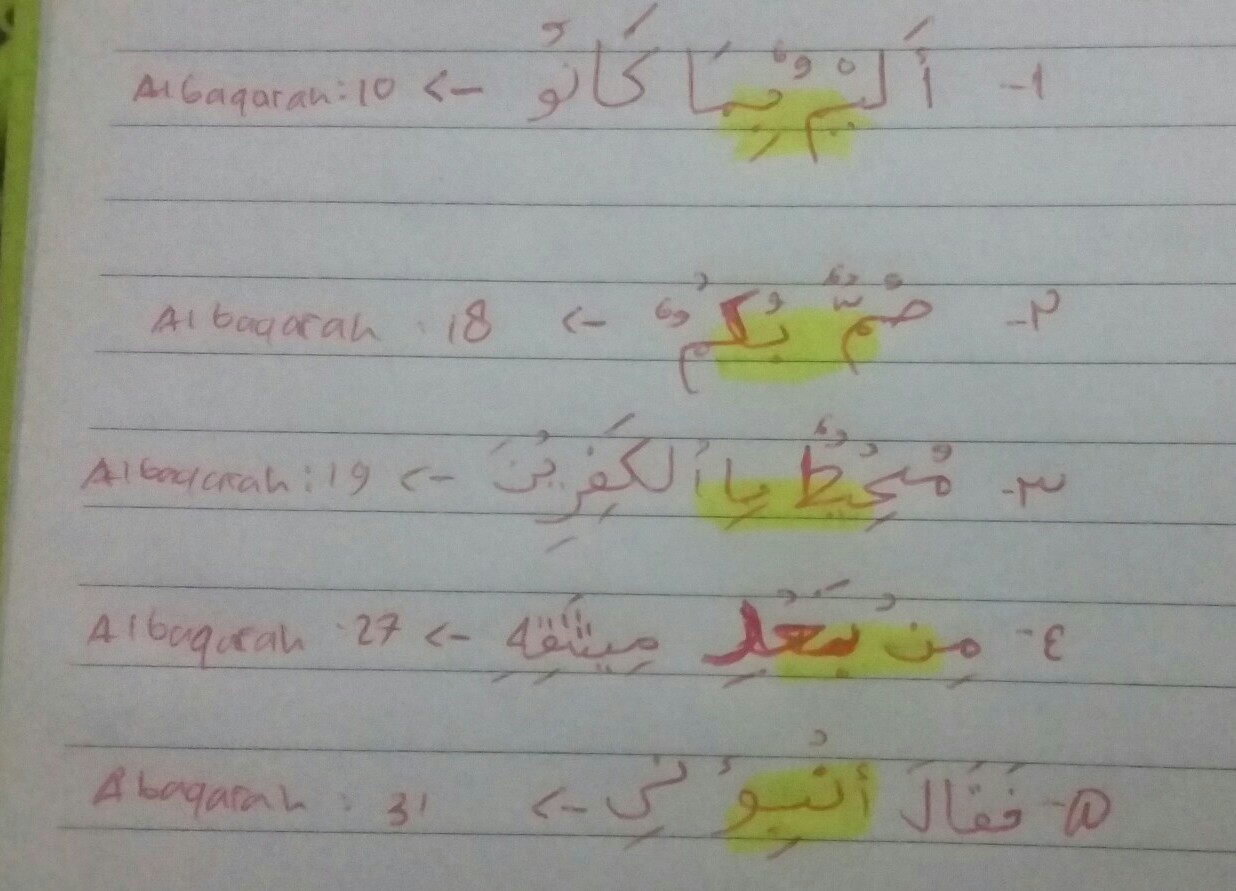 ١- أَلِيمٌ بِمَا كَانُو -> Albaqarah: 10
٢- صُمٌّ بُكْمٌ -> Albaqarah: 18
٣- مُحِيْطٌ بِاٱلكَفِرِيْنَ -> Albaqarah: 19
٤- مِنْ بَعْدِ مِيثَٰقِهِ -> Albaqarah: 27
٥- فَقَالَ أَنْبِـُٔونِى -> Abaqarah: 31